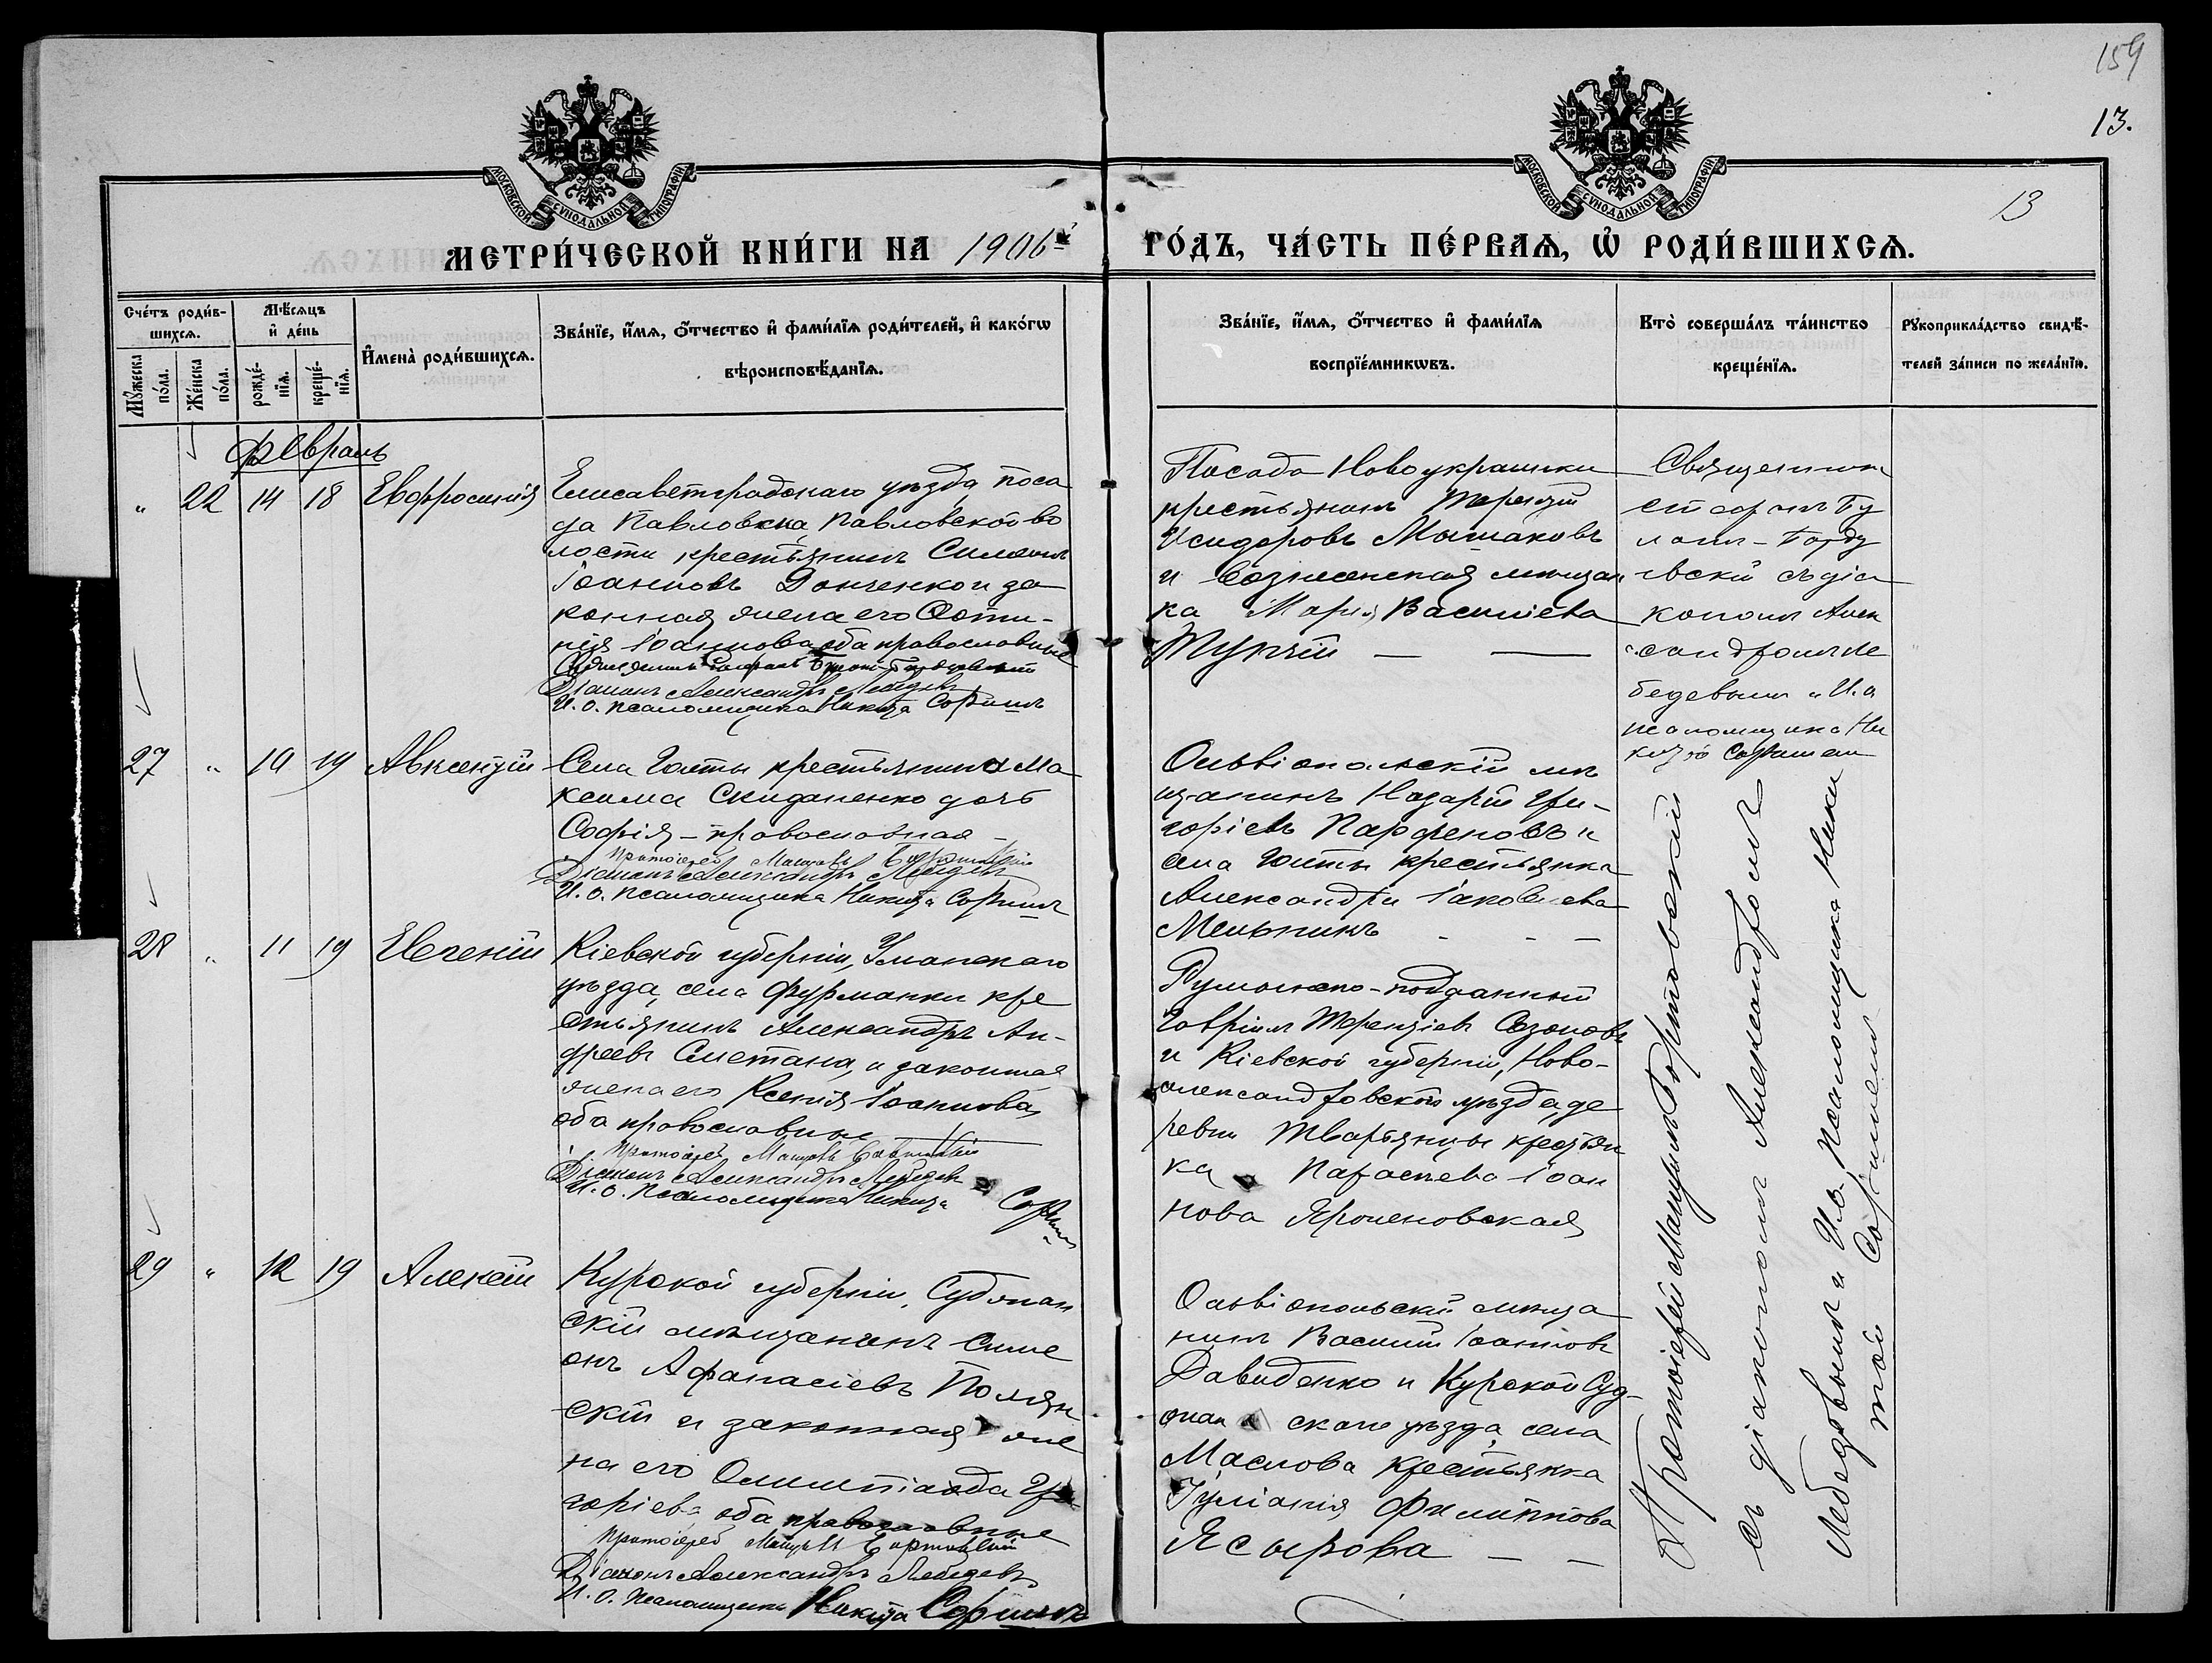 159
13.
13
МОСКОВСКОЙ СѴНОДАЛЬНОЙ ТИПОГРАФІИ
МОСКОВСКОЙ СѴНОДАЛЬНОЙ ТИПОГРАФІИ
МЕТРИ́ЧЕСКОЙ КНИ́ГИ НА 1906й ГО́ДЪ, ЧА́СТЬ ПЕ́РВАЯ, Ѡ҆ РОДИ́ВШИХСЯ.
Счéтъ роди́в-
шихся.
Мѣ́сяцъ
и҆ де́нь
Мꙋ́жеска
по́ла.
Же́нска
по́ла.
рожде́-
нїя.
креще́-
нїя.
И҆мена̀ роди́вшихся.
Зва́нїе, и҆́мя, о҆́тчество и҆ фами́лїя роди́телей, и҆ како́гѡ
вѣроисповѣ́данїя.
Зва́нїе, и҆́мя, о҆́тчество и҆ фами́лїя
воспрїе́мникѡвъ.
Кто̀ соверша́лъ та́инство
креще́нїя.
Рꙋкоприкла́дство свидѣ́-
телей за́писи по жела́нїю.
Февраль
" 22 14 18 Евфросинія
Елисаветградскаго уѣзда, поса
да Павловска, Павловской во
лости крестьянинъ Симеонъ
Іоанновъ Донченко и за
конная жена его Фоти-
нія Іоаннова, оба православные
Діаконъ Александръ Лебедевъ
И. о. псаломщика Никита Сорминъ
Посада Новоукраинки
крестьянинъ Терентій
Исидоровъ Мышаковъ
и Вознесенская мѣщан
ка Марія Васильева
Тупчій — —
Священник
Стефанъ Бу
лани-Борду
евскій съ діа
кономъ Алек
сандромъ Ле
бедевымъ и И. о
псаломщика Ни
китою
27 " 10 19 Авксентій
Села Голты крестьянина Ма
ксима Скиданенко дочь
Софія — православная —
Протоіерей
Діаконъ Александръ Лебедевъ
И. о. псаломщика Никита Сорминъ
Ольвіопольскій мѣ
щанинъ Назарій Гри-
горіевъ Парфеновъ и
села Голты крестьянка
Александра Іаковлева
Мельникъ - - —
28 " 11 19 Евгеній
Кіевской губерніи, Уманскаго
уѣзда, села Фурманки кре
стьянинъ Александръ Ан-
дреевъ Сметана, и законная
жена его Ксенія Іоаннова,
оба православные
Протоіерей
Діаконъ Александръ Лебедевъ
И. о. Псаломщика Никита
Румынско-подданный
Гавріилъ Терентіевъ Созоновъ
и Кіевской губерніи, Ново-
александровскаго уѣзда, де
ревни крестьян
ка Параскева Іоан
нова
29 " 12 19 Алексій
Курской губерніи, Суджан
скій мѣщанинъ Симе
онъ Афанасіевъ Полян
скій и законная же
на его Олимпіада Гри
горіева оба православные
Протоіерей
Діаконъ Александръ Лебедевъ
И. о. Псаломщика Никита Сорминъ
Ольвіопольскій мѣща
нинъ Василій Іоанновъ
Давиденко и Курской Суд-
жан скаго уѣзда, села
Маслова крестьянка
Іуліанія Филиппова
Ясырова — —
Протоіерей
съ діакономъ Александромъ
Лебедевымъ и И. о. Псаломщика Ники
тою